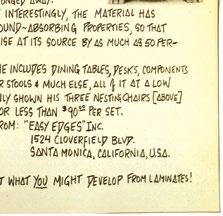 INTERESTINGLY, THE MATERIAL HAS
OUND-ABSORBING PROPERTIES, SO THAT
ISE AT ITS SOURCE BY AS MUCH AS 50 PER-
E INCLUDES DINING TABLES, DESKS, COMPONENTS
R STOOLS & MUCH ELSE, ALL OF IT AT A LOW
LY SHOWN HIS THREE NESTING CHAIRS [ABOVE]
OR LESS THAN $90.00 PER SET.
ROM: "EASY EDGES" INC.
1524 CLOVERFIELD BLVD.
SANTA MONICA, CALIFORNIA, U.S.A.
T WHAT YOU MIGHT DEVELOP FROM LAMINATES!